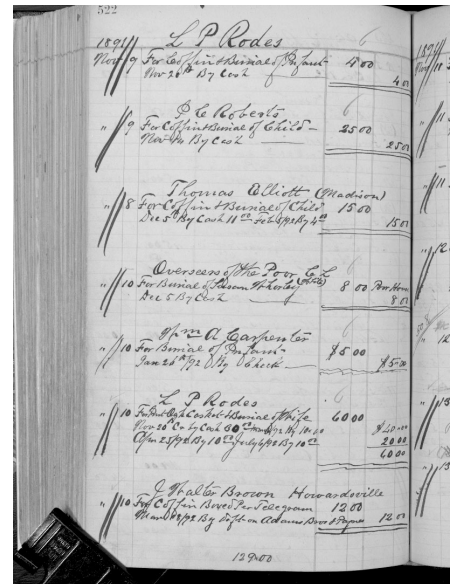 522
1891 L P Rodes 6
Nov 9 For Coffin & Burial of Infant 4 00
Nov 26th By Cash 4 00
P C Roberts 6
" 9 For Coffin & Burial of Child — 25 00
Nov By Cash 25 00
Thomas Alliott (Madison)
" 8 For Coffin & Burial of Child 15 00
Dec 5th By Cash 11 00 Feb 5/92 By 4 00 15 00
Overseers of the Poor
" 10 For Burial of Susan (White) 8 00 Poor House
Dec 5 By Cash 8 00
Wm A Carpenter 6
" 10 For Burial of Infant $5 00
Jan 26th/92 By Check $5 00
L P Rodes 6
" 10 For Casket & Burial of Wife 60 00
Nov 20 By Cash By 10 00 $40 00
Apr 25/92 By 10 00 July 6/92 By 10 00 20 00
60 00
J Walter Brown Howardsville
" 10 For Coffin Boxed Per Telegram 12 00
By Dift on Adams Bros & Payne 12 00
129.00
1891
Nov